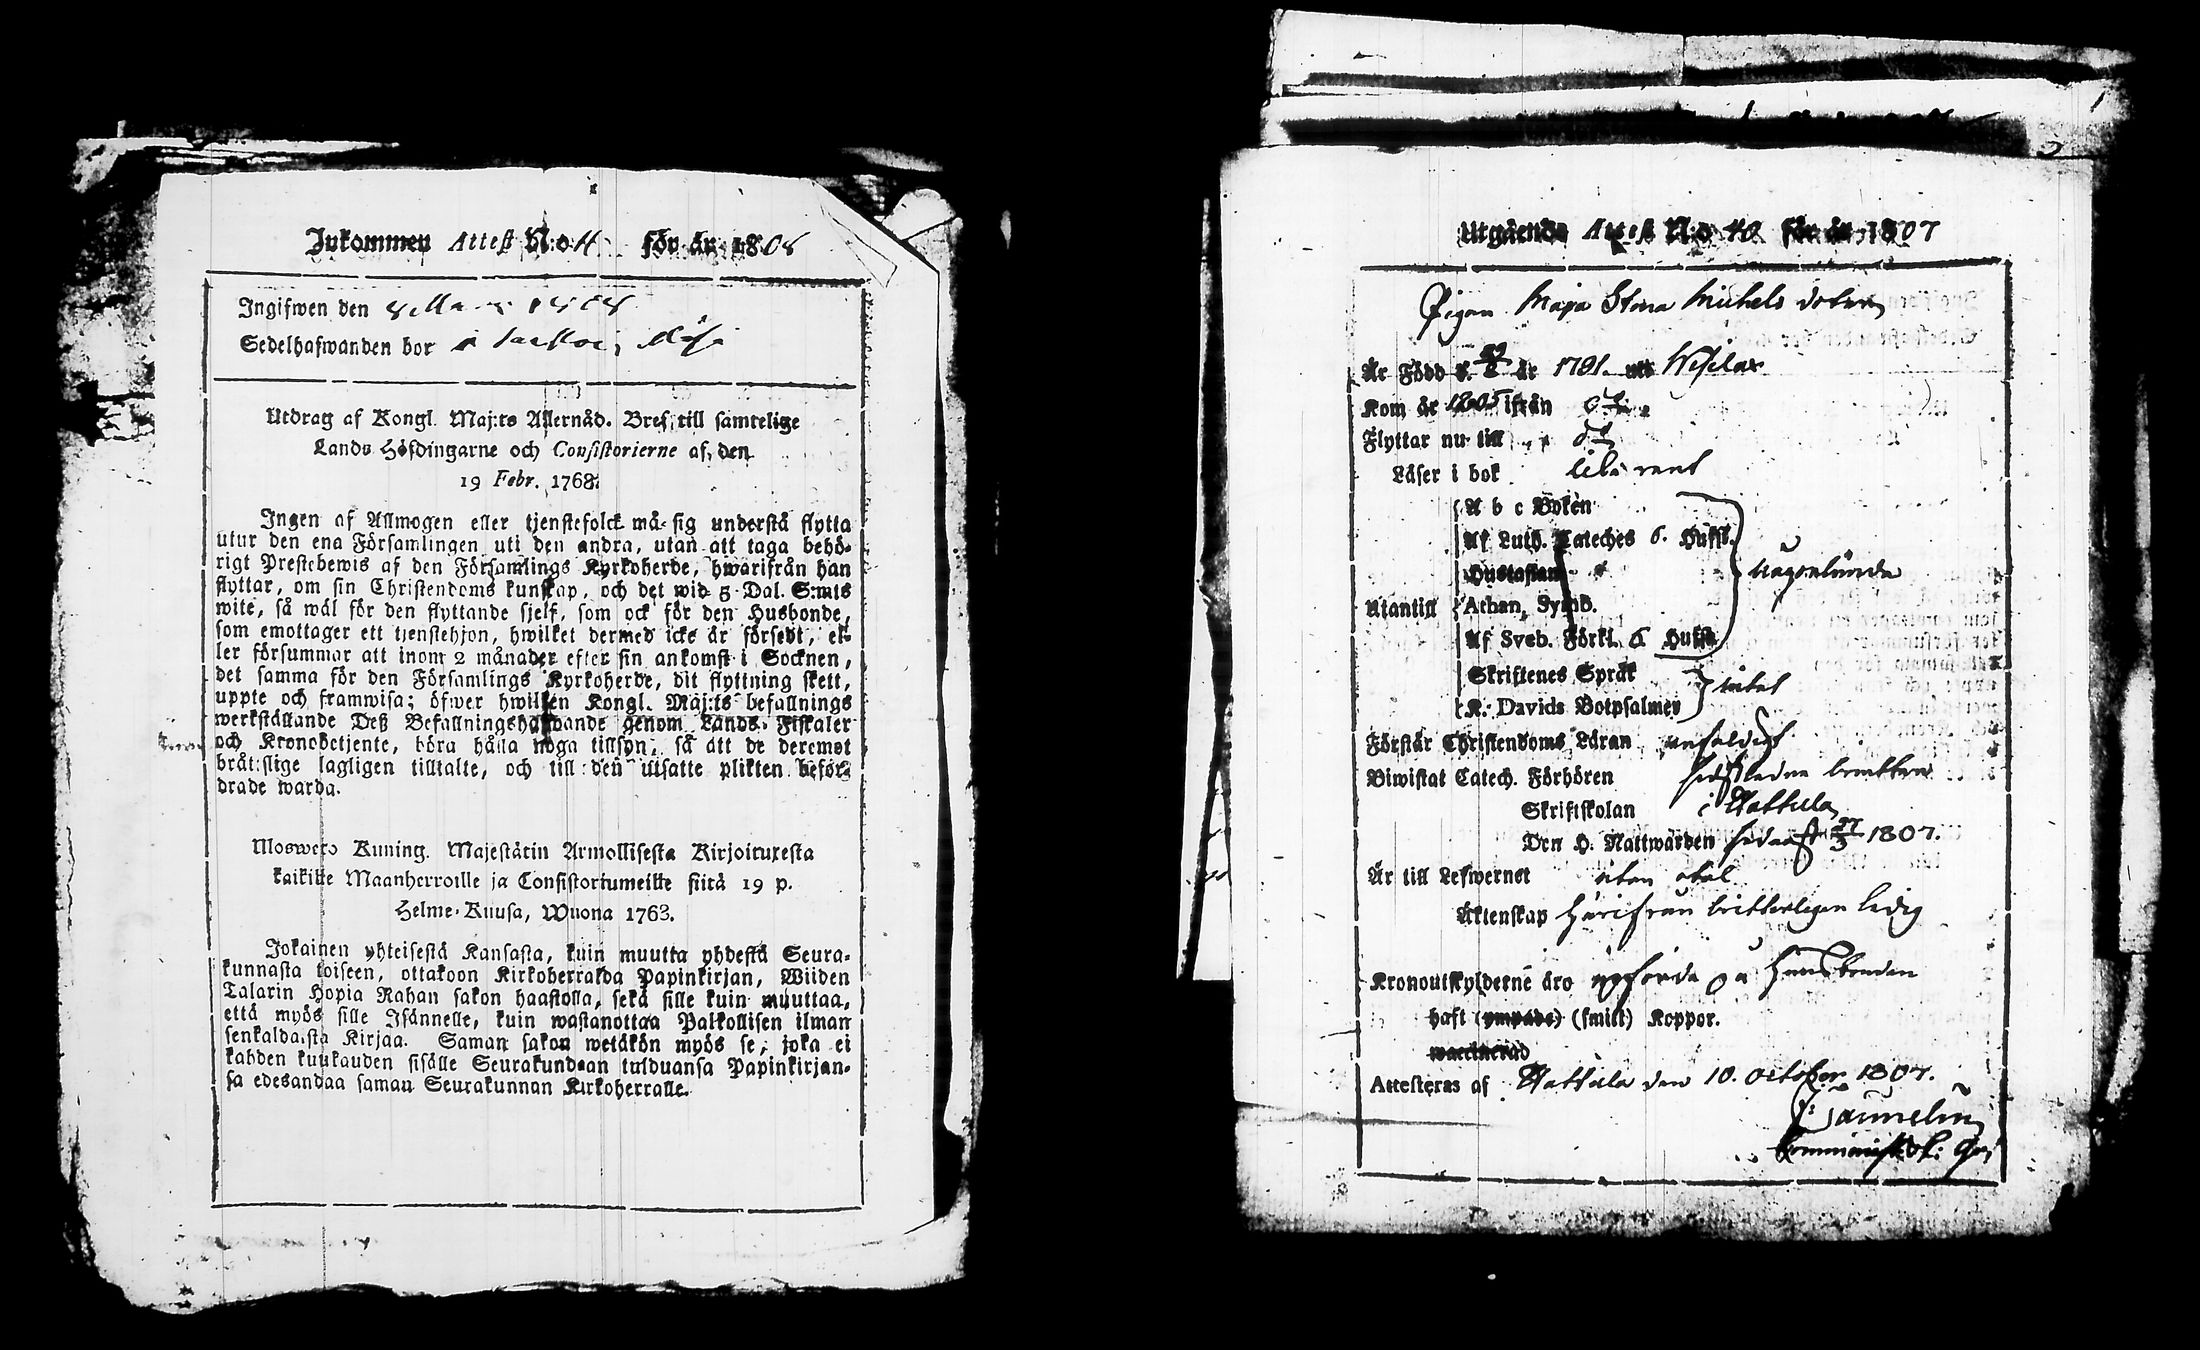 Inkommen Attest N:o 4 för år 1808
Ingifwen den 1808
Sedelhafwanden bor
Utdrag af Kongl. Maj:ts Allernåd. Bref till samtelige
Lands Höfdingarne och Consistorierne af, den
19 Febr. 1763.
Ingen af Allmogen eller tjenstefolck må sig understå flytta
utur den ena Församlingen uti den andra, utan att taga behö-
rigt Prestebewis af den Församlings Kyrkoherde, hwarifrån han
flyttar, om sin Christendoms kunskap, och det wid 5 Dal. S:mts
wite, så wäl för den flyttande sjelf, som ock för den Husbonde,
som emottager ett tjenstehjon, hwilket dermed icke är försedt, el-
ler försummar att inom 2 månader efter sin ankomst i Socknen,
det samma för den Församlings Kyrkoherde, dit flyttning skett,
uppte och framwisa; öfwer hwilken Kongl. Maj:ts befallnings
werkställande Deß Befallningshafwande genom Lands-Fiskaler
och Kronobetjente, böra hålla noga tillsyn, så att de deremot
bråtslige lagligen tilltalte, och till den utsatte plikten beför-
drade warda.
Kuning. Majestätin Armollisesta Kirjoituxesta
kaikille Maanherroille ja Consistoriumeille siitä 19 p.
Helme-Kuusa, Wuona 1763.
Jokainen yhteisestä Kansasta, kuin muutta yhdestä Seura-
kunnasta toiseen, ottakoon Kirkoherralda Papinkirjan, Wiiden
Talarin Hopia Rahan sakon haastolla, sekä sille kuin muuttaa,
että myös sille Isännelle, kuin wastanottaa Palkollisen ilman
senkaldaista Kirjaa. Saman sakon wetäkön myös se, joka ei
kahden kuukauden sisälle Seurakundaan tulduansa Papinkirjan-
sa edesandaa saman Seurakunnan Kirkoherralle.
Utgående Attest N:o 40 för år 1807
Pigan Maja Stina Michels doter
Är Född d. år 1791. uti
Kom år 1805 ifrån
Flyttar nu till
Läser i bok
A b c Boken
Af Luth. Cateches 6. Hufst.
Hustaflan
Utantill Athan. Symb.
Af Sveb. Förkl. 6 Hufst.
någorlunda
Skriftenes Språk
K. Davids Botpsalmer
intet
Förstår Christendoms Läran enfaldigt
Biwistat Catech. Förhören
Skriftskolan i Hattula
Den H. Nattwarden sednast 1807.
Är till Lefwernet utan
Äktenskap härifrån ledig
Kronoutskylderne äro upförda på Husbonden
haft (ympade) (smitt) Koppor.
waccinerad
Attesteras af Hattula den 10. October 1807.